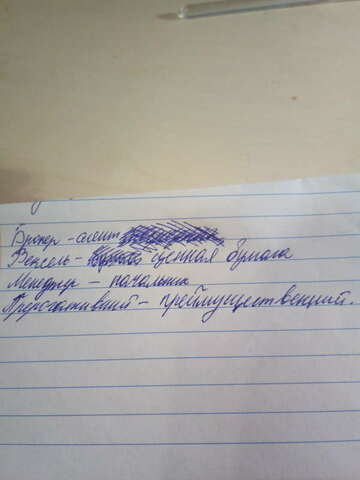 Брокер - агент
Вексель - ценная бумага
Менеджер - начальник
- преимущественный.